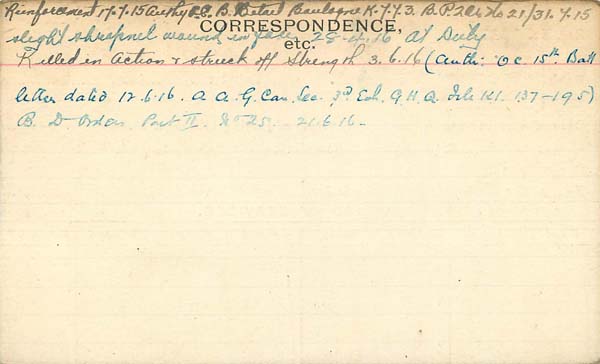 Reinforcement 17.7.15 Authy O.C. B. Detail Boulogne K.7.7.3. B.P. 2 No 21/31.7.15
CORRESPONDENCE,
etc.
slight shrapnel wound in face 28-4-16 at Duty
Killed in Action & struck off Strength 3.6.16 (Auth: O C 15th Batt
letter dated 12.6.16. A A. G. Can. Sec. 3rd Ech. G. H. Q. File K1. 137-195)
B. D Orders Part II. No 25. 21.6.16.